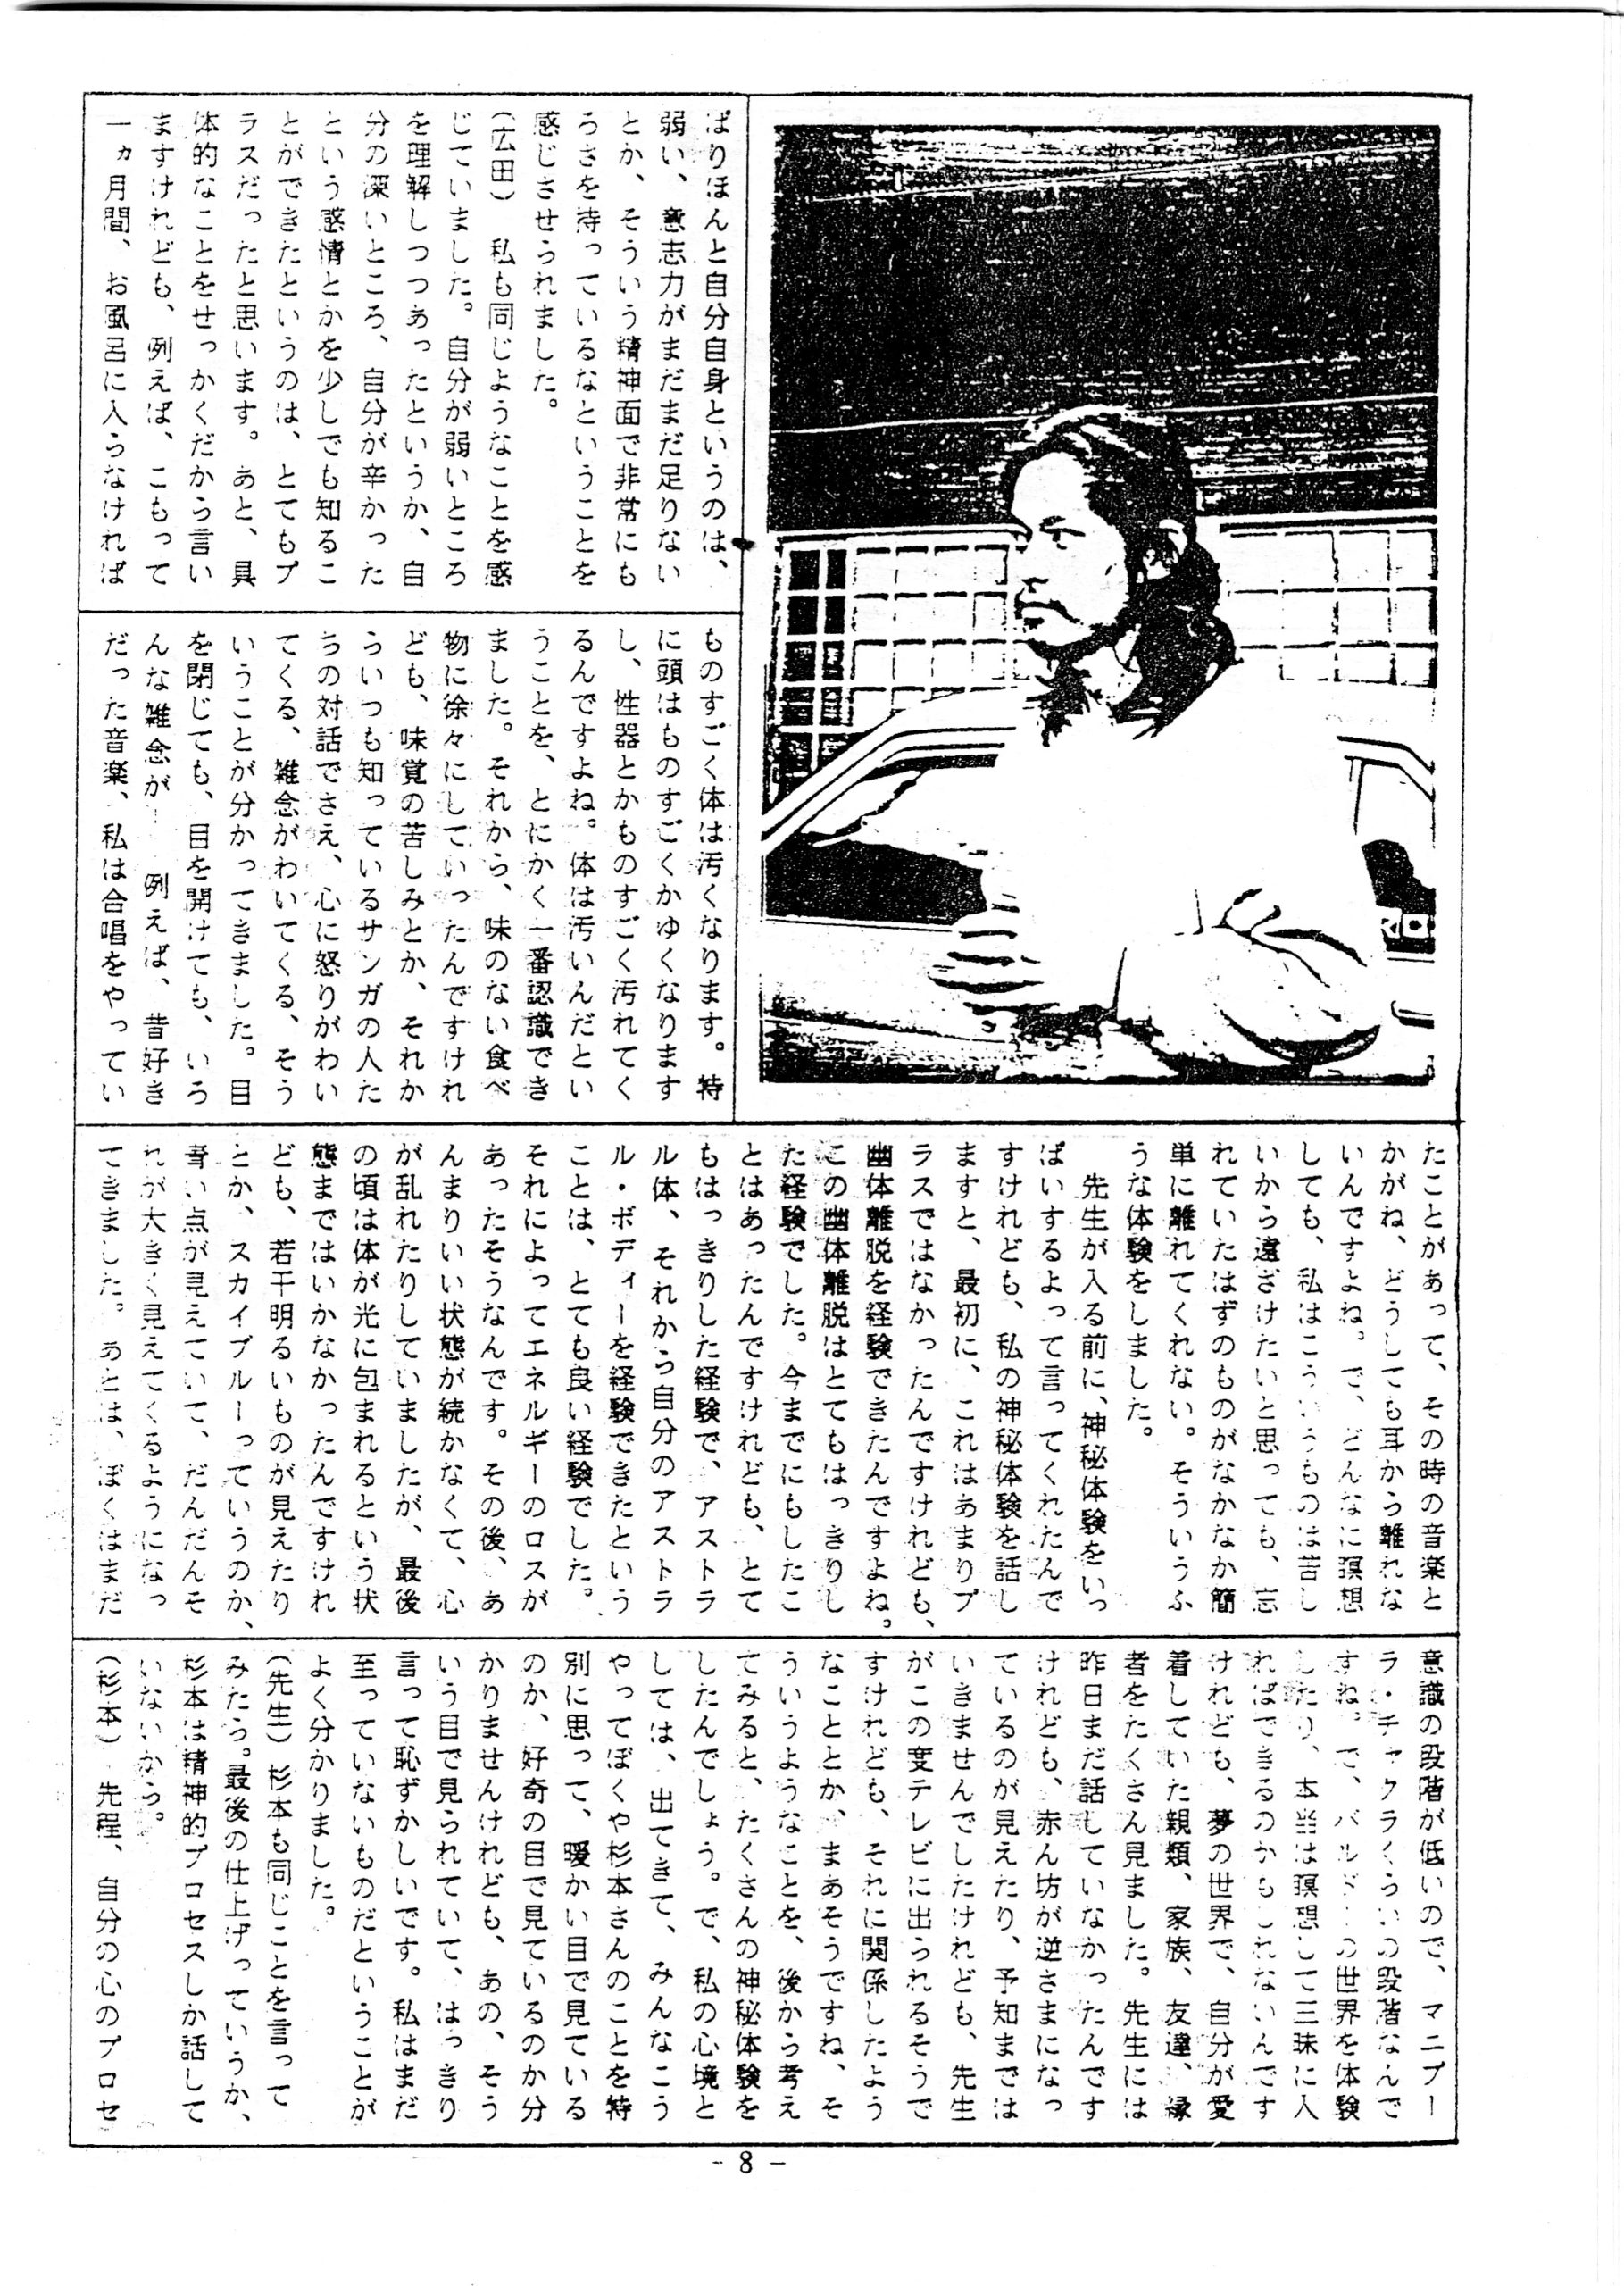 ぱりほんと自分自身というのは、
弱い、意志力がまだまだ足りない
とか、そういう精神面で非常にも
ろさを待っているなということを
感じさせられました。
(広田) 私も同じようなことを感
じていました。自分が弱いところ
を理解しつつあったというか、自
分の深いところ、自分が辛かった
という感情とかを少しでも知るこ
とができたというのは、とてもプ
ラスだったと思います。あと、具
体的なことをせっかくだから言い
ますけれども、例えば、こもって
一ヵ月間、お風呂に入らなければ
ものすごく体は汚くなります。特
に頭はものすごくかゆくなります
し、性器とかものすごく汚れてく
るんですよね。体は汚いんだとい
うことを、とにかく一番認識でき
ました。それから、味のない食べ
物に徐々にしていったんですけれ
ども、味覚の苦しみとか、それか
らいつも知っているサンガの人た
ちの対話でさえ、心に怒りがわい
てくる、雑念がわいてくる、そう
いうことが分かってきました。目
を閉じても、目を開けても、いろ
んな雑念が― 例えば、昔好き
だった音楽、私は合唱をやってい
たことがあって、その時の音楽と
かがね、どうしても耳から離れな
いんですよね。で、どんなに瞑想
しても、私はこういうものは苦し
いから遠ざけたいと思っても、忘
れていたはずのものがなかなか簡
単に離れてくれない。そういうふ
うな体験をしました。
先生が入る前に、神秘体験をいっ
ぱいするよって言ってくれたんで
すけれども、私の神秘体験を話し
ますと、最初に、これはあまりプ
ラスではなかったんですけれども、
幽体離脱を経験できたんですよね。
この幽体離脱はとてもはっきりし
た経験でした。今までにもしたこ
とはあったんですけれども、とて
もはっきりした経験で、アストラ
ル体、それから自分のアストラ
ル・ボディーを経験できたという
ことは、とても良い経験でした。
それによってエネルギーのロスが
あったそうなんです。その後、あ
んまりいい状態が続かなくて、心
が乱れたりしていましたが、最後
の頃は体が光に包まれるという状
態まではいかなかったんですけれ
ども、若干明るいものが見えたり
とか、スカイブルーっていうのか、
青い点が見えていて、だんだんそ
れが大きく見えてくるようになっ
てきました。あとは、ぼくはまだ
意識の段階が低いので、マニプー
ラ・チャクラくらいの段階なんで
すね。で、バルドーの世界を体験
したり、本当は瞑想して三昧に入
ればできるのかもしれないんです
けれども、夢の世界で、自分が愛
着していた親類、家族、友達、縁
者をたくさん見ました。先生には
昨日まだ話していなかったんです
けれども、赤ん坊が逆さまになっ
ているのが見えたり、予知までは
いきませんでしたけれども、先生
がこの度テレビに出られるそうで
すけれども、それに関係したよう
なこととか、まあそうですね、そ
ういうようなことを、後から考え
てみると、たくさんの神秘体験を
したんでしょう。で、私の心境と
しては、出てきて、みんなこう
やってぼくや杉本さんのことを特
別に思って、暖かい目で見ている
のか、好奇の目で見ているのか分
かりませんけれども、あの、そう
いう目で見られていて、はっきり
言って恥ずかしいです。私はまだ
至っていないものだということが
よく分かりました。
(先生) 杉本も同じことを言って
みたら。最後の仕上げっていうか、
杉本は精神的プロセスしか話して
いないから。
(杉本) 先程、自分の心のプロセ
- 8 -